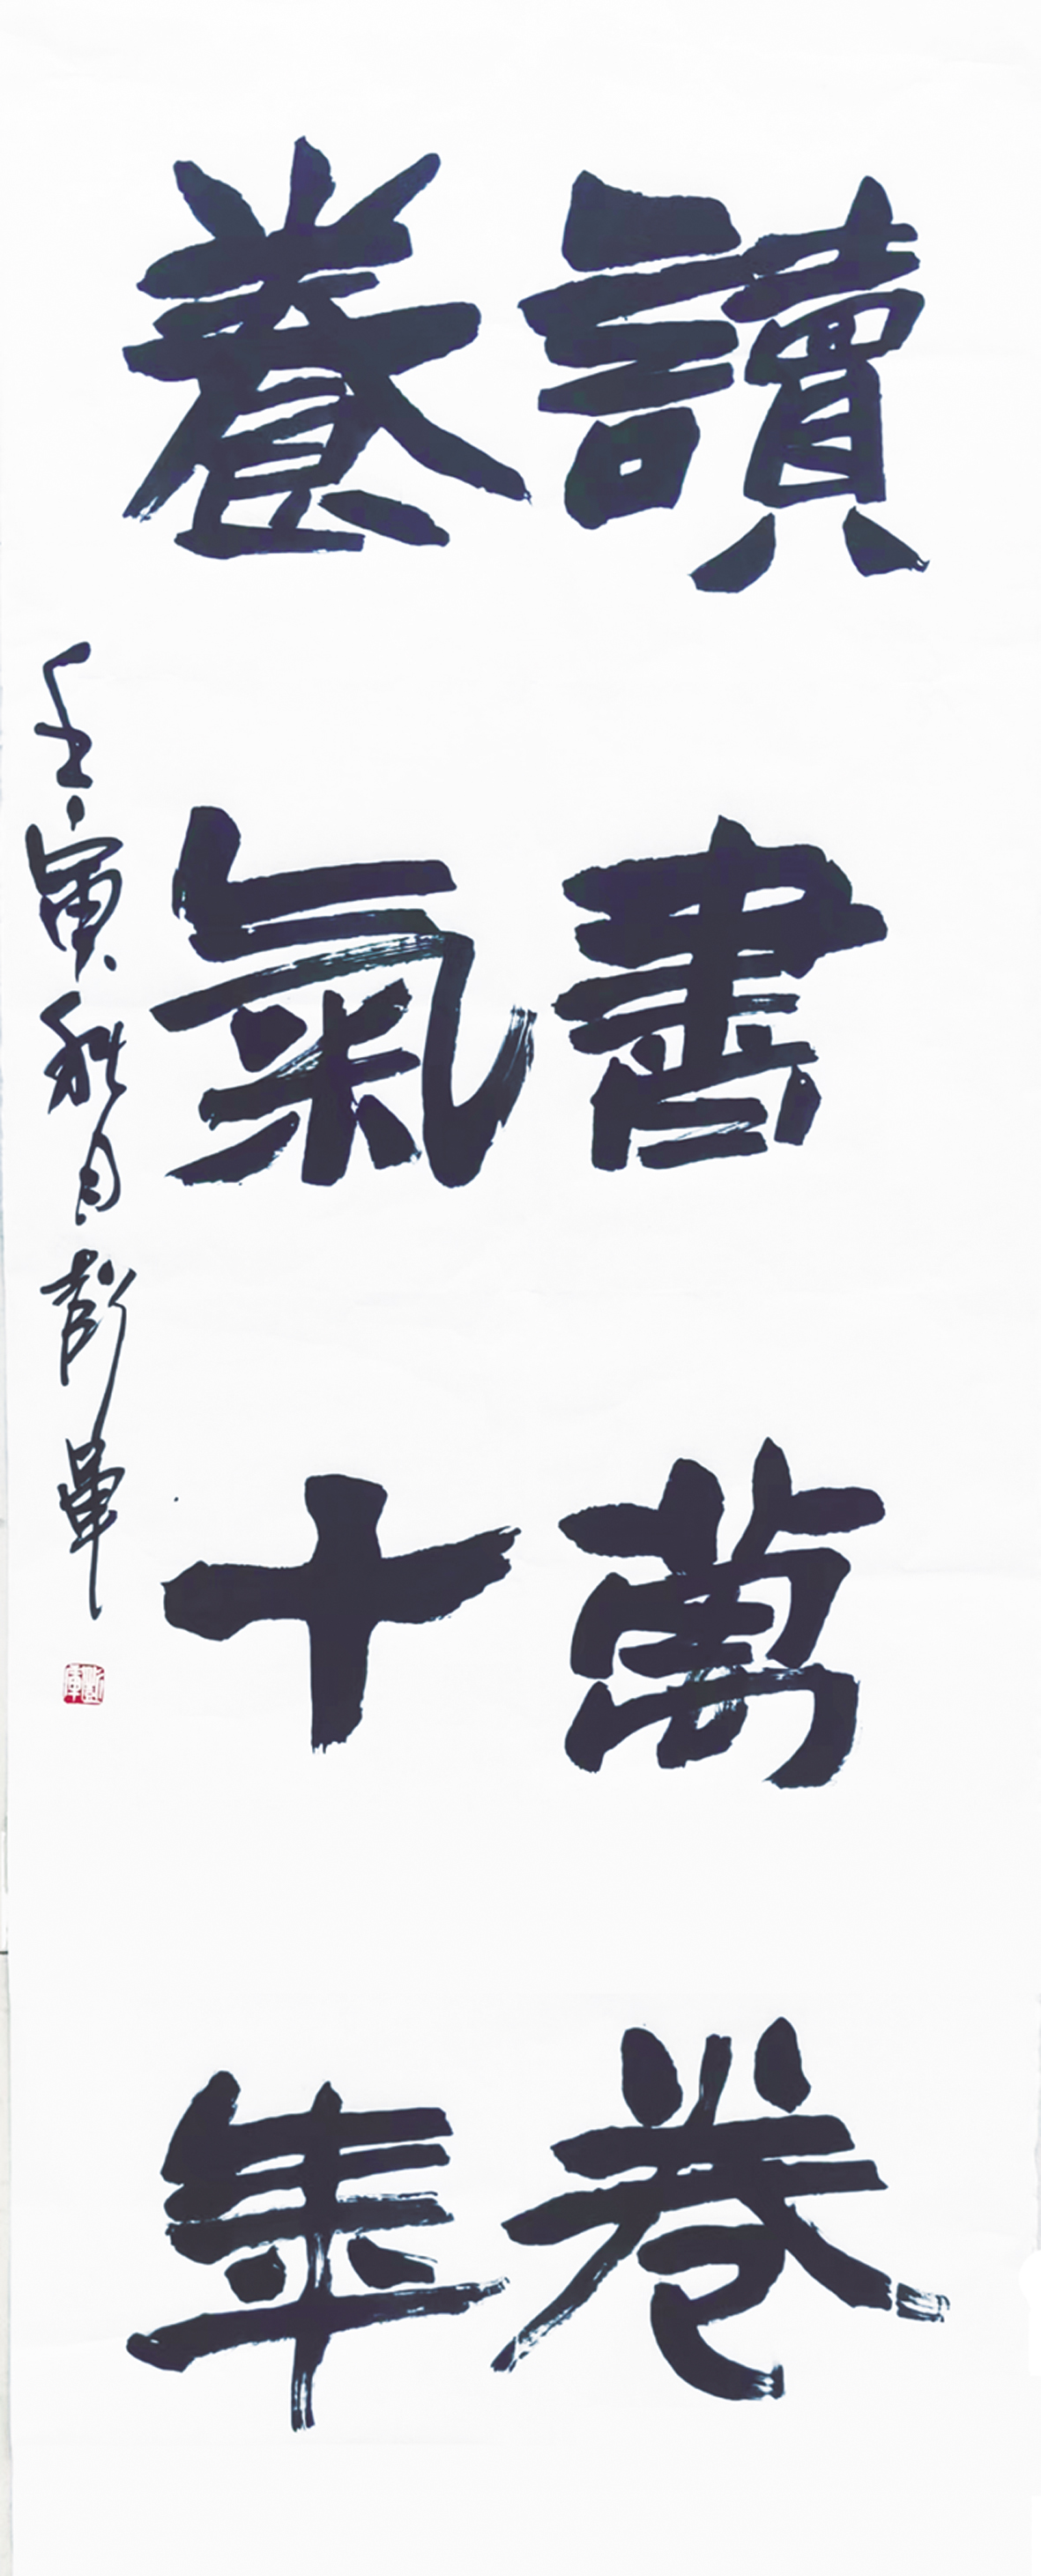 讀書萬卷
養氣十年
壬寅秋月彭軍